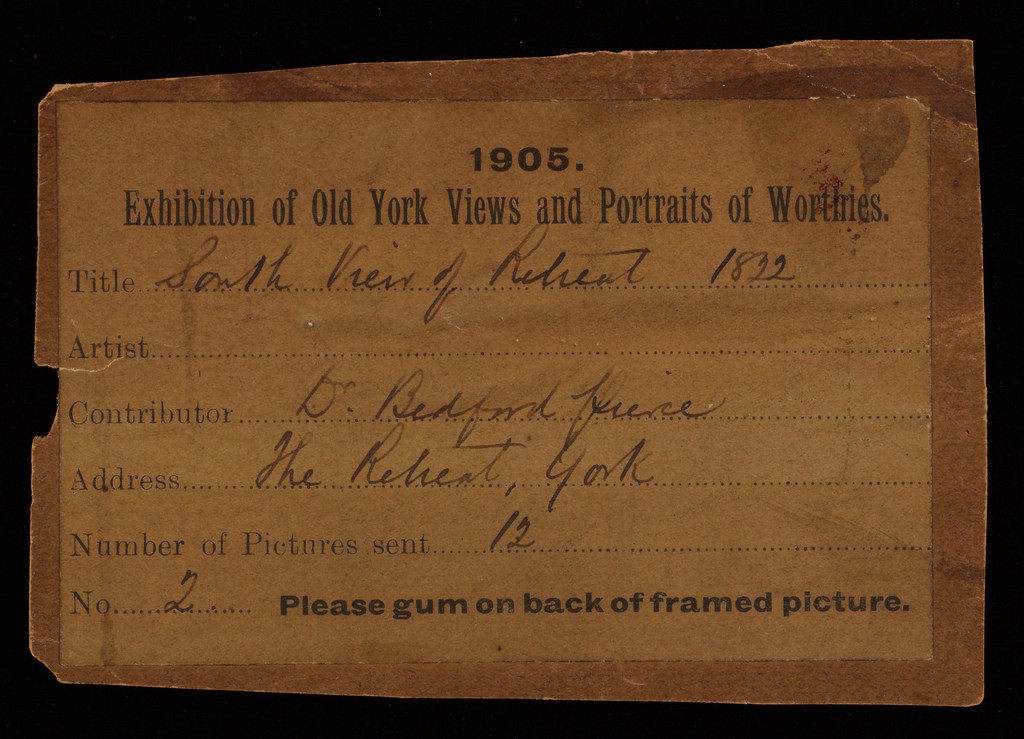 1905.
Exhibition of Old York Views and Portraits of Worthies.
Title South View of Retreat 1822
Artist
Contributor Dr. Bedford Pierce
Address The Retreat, York
Number of Pictures sent 12
No. 2 Please gum on back of framed picture.